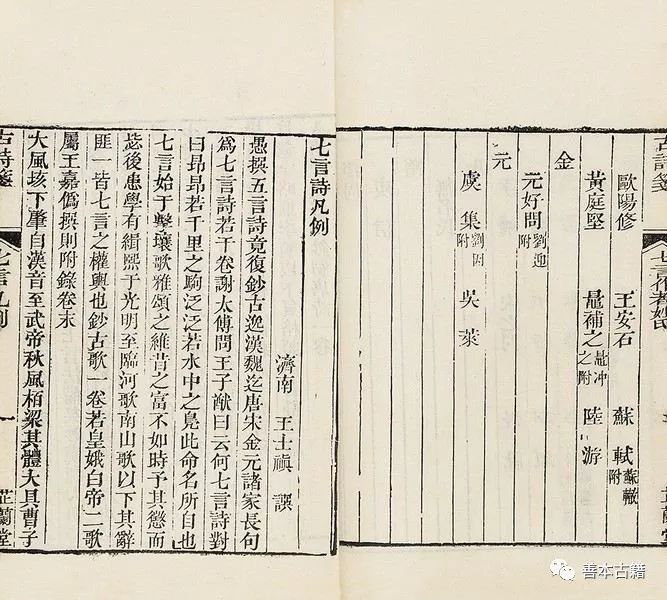 古詩箋 七言 芷蘭堂
歐陽修 王安石 蘇軾 蘇轍附
黃庭堅 鼂補之 鼂冲之附 陸游
金
元好問 劉迎附
元
虞集 劉因附 吳萊
七言詩凡例
濟南 王士禛 譔
愚撰五言詩竟復鈔古逸漢魏迄唐宋金元諸家長句
爲七言詩若干卷謝太傅問王子猷曰云何七言詩對
曰昻昻若千里之駒泛泛若水中之鳧此命名所自也
七言始于擊壤歌雅頌之維昔之富不如時予其懲而
毖後患學有緝熙于光明至臨河歌南山歌以下其辭
匪一皆七言之權輿也鈔古歌一卷若皇娥白帝二歌
屬王嘉僞撰則附錄卷末
大風垓下肇自漢音至武帝秋風栢梁其體大具曹子
古詩箋 七言凡例 一 芷蘭堂
善本古籍